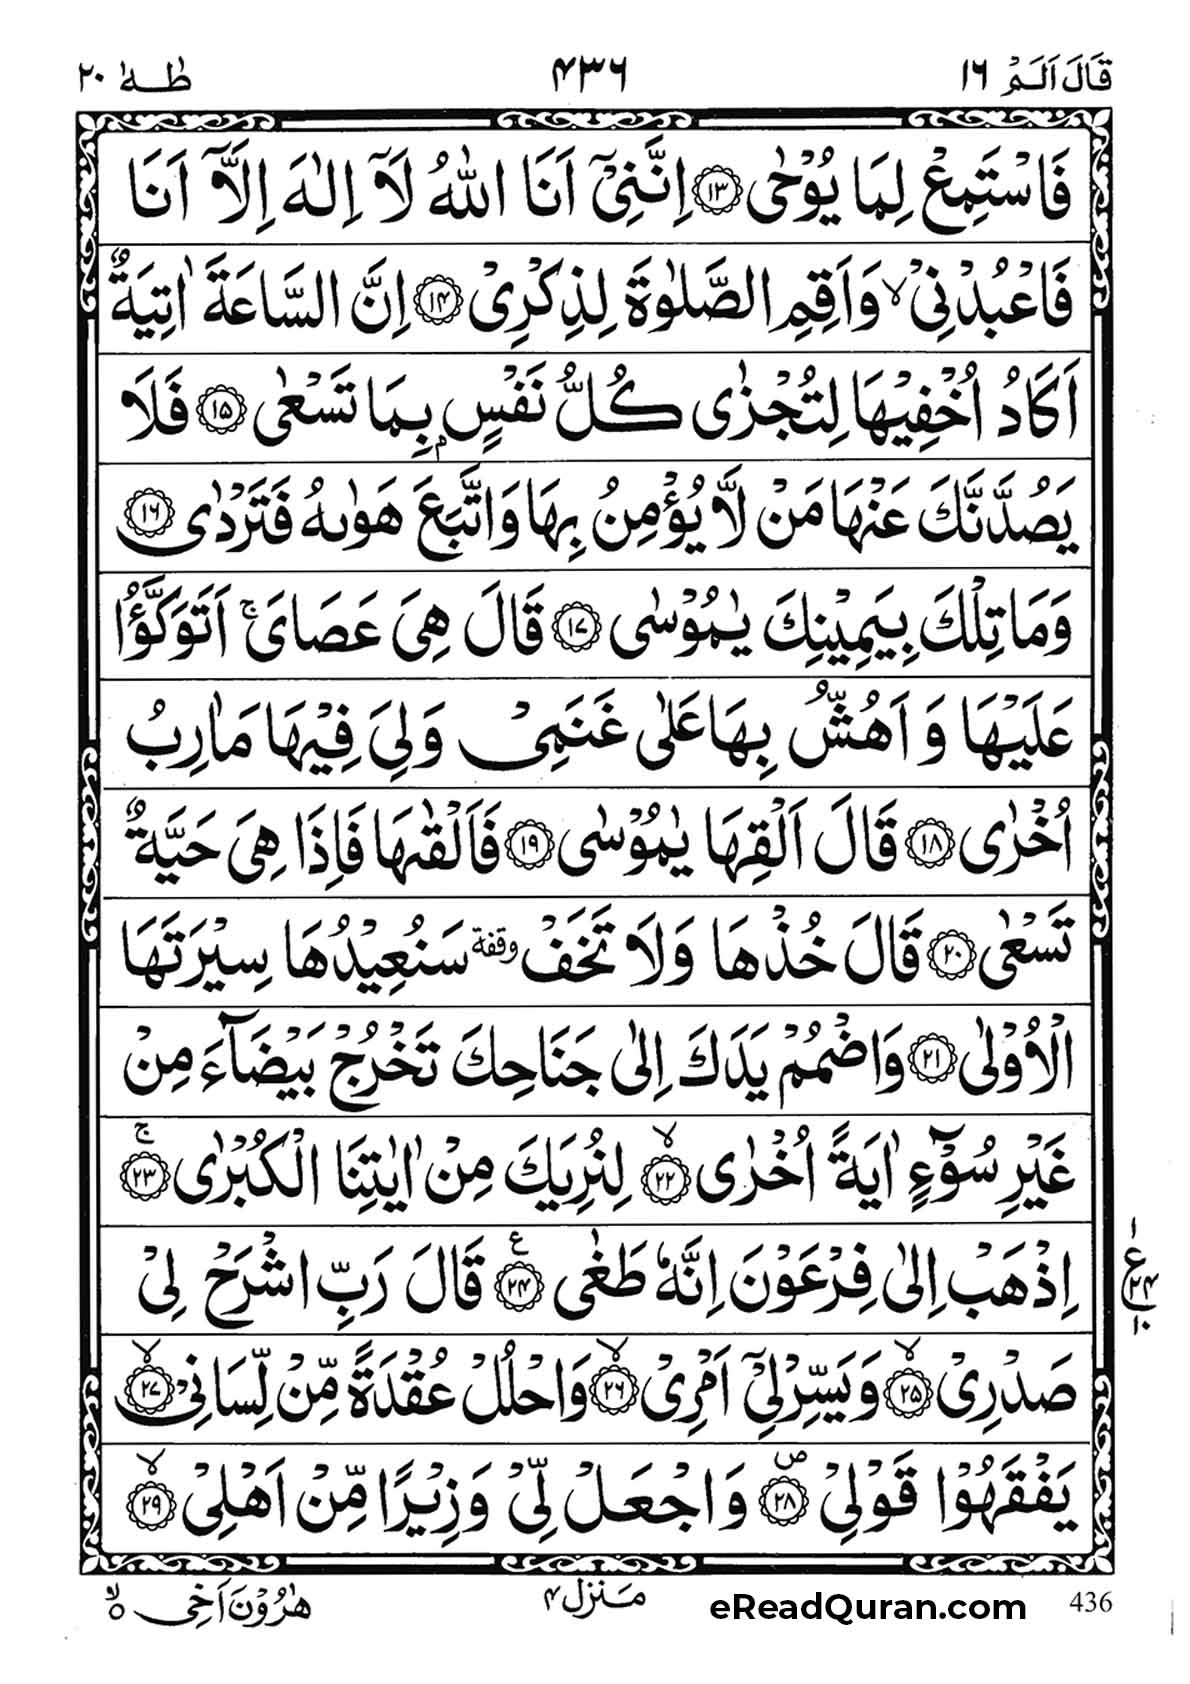 قَالَ اَلَمْ ١٦ ۴۳۶ طٰهٰ ٢٠
فَاسْتَمِعْ لِمَا يُوْحٰى ﴿١٣﴾ اِنَّنِىْۤ اَنَا اللّٰهُ لَاۤ اِلٰهَ اِلَّاۤ اَنَا
فَاعْبُدْنِىْ ۙ وَاَقِمِ الصَّلٰوةَ لِذِكْرِىْ ﴿١۴﴾ اِنَّ السَّاعَةَ اٰتِيَةٌ
اَكَادُ اُخْفِيْهَا لِتُجْزٰى كُلُّ نَفْسٍۢ بِمَا تَسْعٰى ﴿١۵﴾ فَلَا
يَصُدَّنَّكَ عَنْهَا مَنْ لَّا يُؤْمِنُ بِهَا وَاتَّبَعَ هَوٰٮهُ فَتَرْدٰى ﴿١٦﴾
وَمَا تِلْكَ بِيَمِيْنِكَ يٰمُوْسٰى ﴿١٧﴾ قَالَ هِىَ عَصَاىَ ۚ اَتَوَكَّؤُا
عَلَيْهَا وَاَهُشُّ بِهَا عَلٰى غَنَمِىْ وَلِىَ فِيْهَا مَاٰرِبُ
اُخْرٰى ﴿١٨﴾ قَالَ اَلْقِهَا يٰمُوْسٰى ﴿١٩﴾ فَاَلْقٰٮهَا فَاِذَا هِىَ حَيَّةٌ
تَسْعٰى ﴿٢٠﴾ قَالَ خُذْهَا وَلَا تَخَفْ وقفة سَنُعِيْدُهَا سِيْرَتَهَا
الْاُوْلٰى ﴿٢١﴾ وَاضْمُمْ يَدَكَ اِلٰى جَنَاحِكَ تَخْرُجْ بَيْضَآءَ مِنْ
غَيْرِ سُوْٓءٍ اٰيَةً اُخْرٰى ۙ﴿٢٢﴾ لِنُرِيَكَ مِنْ اٰيٰتِنَا الْكُبْرٰى ۚ﴿٢٣﴾
اِذْهَبْ اِلٰى فِرْعَوْنَ اِنَّهٗ طَغٰى ﴿٢۴﴾ ع قَالَ رَبِّ اشْرَحْ لِىْ
١ ع ٢۴ ١٠
صَدْرِىْ ۙ﴿٢۵﴾ وَيَسِّرْ لِىْۤ اَمْرِىْ ۙ﴿٢٦﴾ وَاحْلُلْ عُقْدَةً مِّنْ لِّسَانِىْ ۙ﴿٢٧﴾
يَفْقَهُوْا قَوْلِىْ ﴿٢٨﴾ ص وَاجْعَلْ لِّىْ وَزِيْرًا مِّنْ اَهْلِىْ ۙ﴿٢٩﴾
436 eReadQuran.com مَنزل ۴ هٰرُوْنَ اَخِى ۙ۵